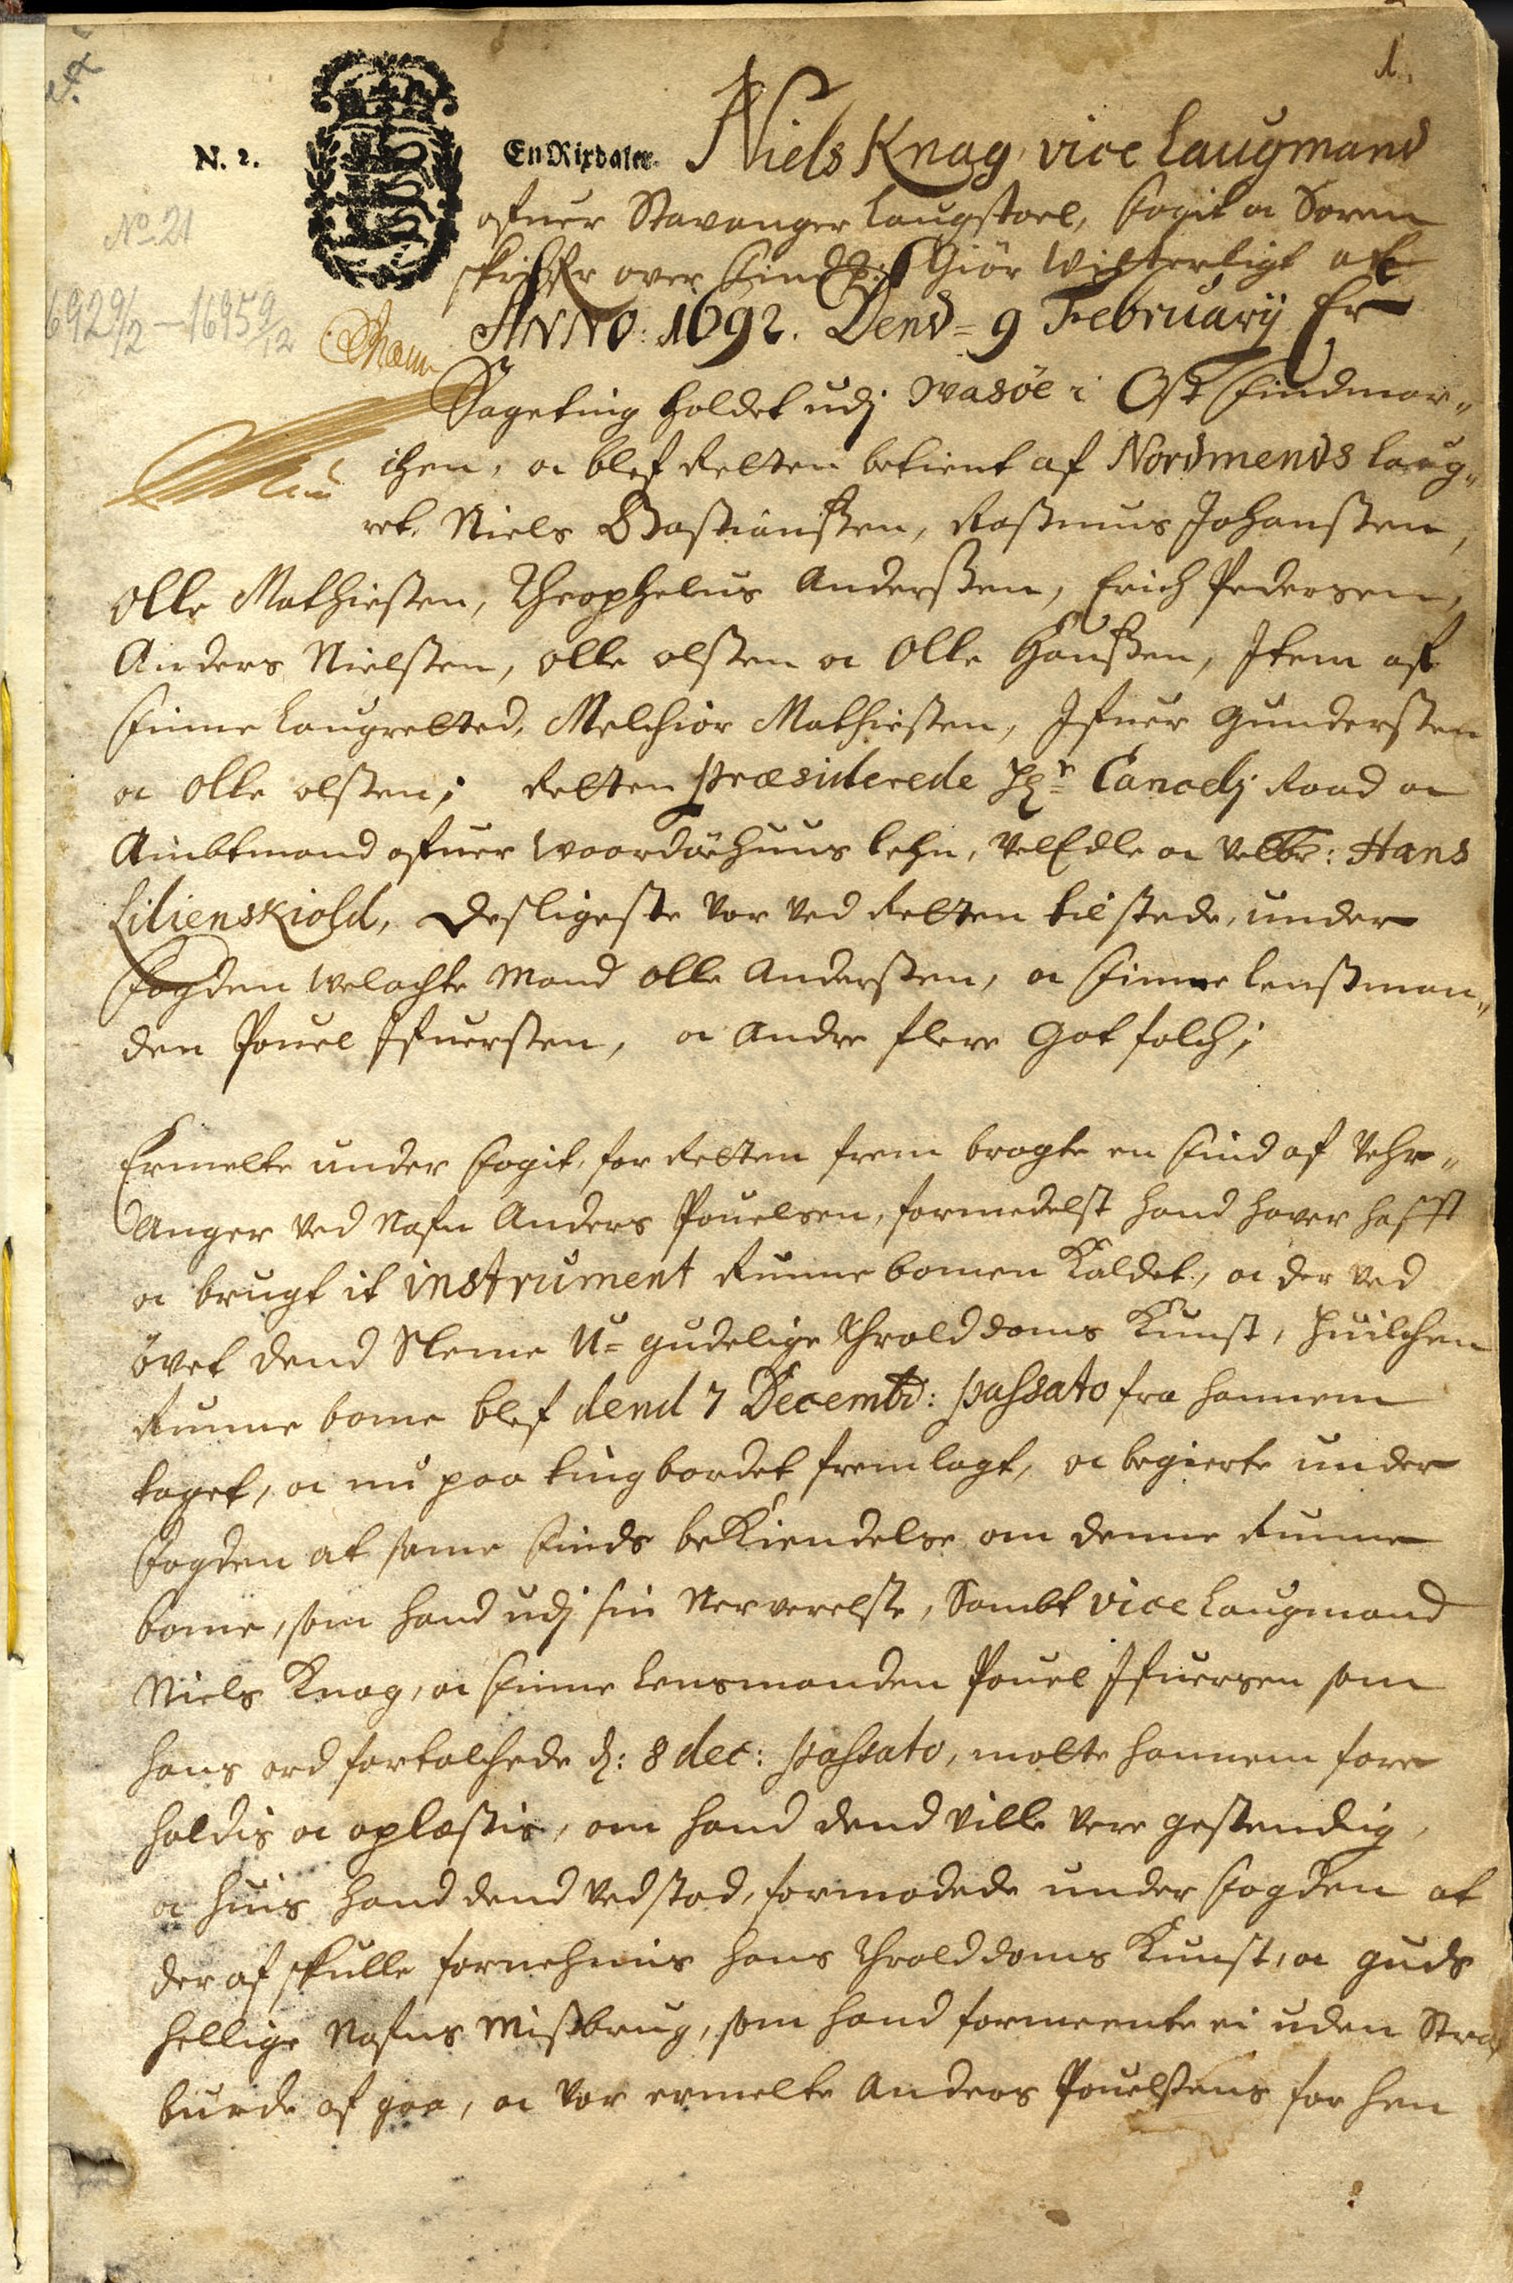 1.
N. 2.
En Rixdaler.
Niels Knag vice Laugmand
ofuer Stavanger Laugstoel, Fogit oc Soren
skriffr over Findm: Giör Witterligt at
ANNO: 1692. Dend = 9 February Er
No 21
6929/2 - 16959/12
Sageting holdet udj Wasöe i Ost Findmar„
chen, oc blef Retten betient af Nordmends Laug„
ret, Niels Bastianssen, Rassmus Johanssen,
Olle Mathiessen, Theophelus Anderssen, Erich Pedersen,
Anders Nielssen, Olle olssen oc Olle Hanssen, Item aff
Finne Laugretted, Melchior Mathiessen, Ifuer Gunderssen
oc Olle olssen; Retten præsiderede Hr Cancelj Raad oc
Ambtmand ofuer Waardöehuus Lehn, Veledle oc Velbr: Hans
Lilienskiold, Desligeste var ved Retten tilstede, under
Fogden Welachte Mand Olle Anderssen, oc Finne Lenssman„
den Pouel Ifuerssen, oc Andre flere Got folch;
Ermelte under Fogit, for Retten frem bragte en Find af Vehr„
Anger ved Nafn Anders Pouelsen, formedelst hand haver hafft
oc brugt it instrument Runnebomen Kaldet, oc der ved
övet dend Slemme U= gudelige Throlddoms Kunst, huilchen
Runne bome blef dend 7 Decembr: passato fra hannem
taget, oc nu paa tingbordet fremlagt, oc begierte under
Fogden at samme Finds beKiendelse om denne Runne
bome, som hand udj sin Nerverelse, Sambt vice Laugmand
Niels Knag, oc Finne Lensmanden Pouel Ifuersen som
hans ord fortolchede d: 8 dec: passato, motte hannem fore
holdis oc oplæssis, om hand dend ville vere gestendig,
oc huis hand dend vedstod, formodede under Fogden at
der af skulle fornehmis hans Throlddoms Kunst, oc guds
hellige Nafns Missbrug, som hand formeente ei uden Straf
burde af gaa, oc var ermelte Anders Pouelssens for hen